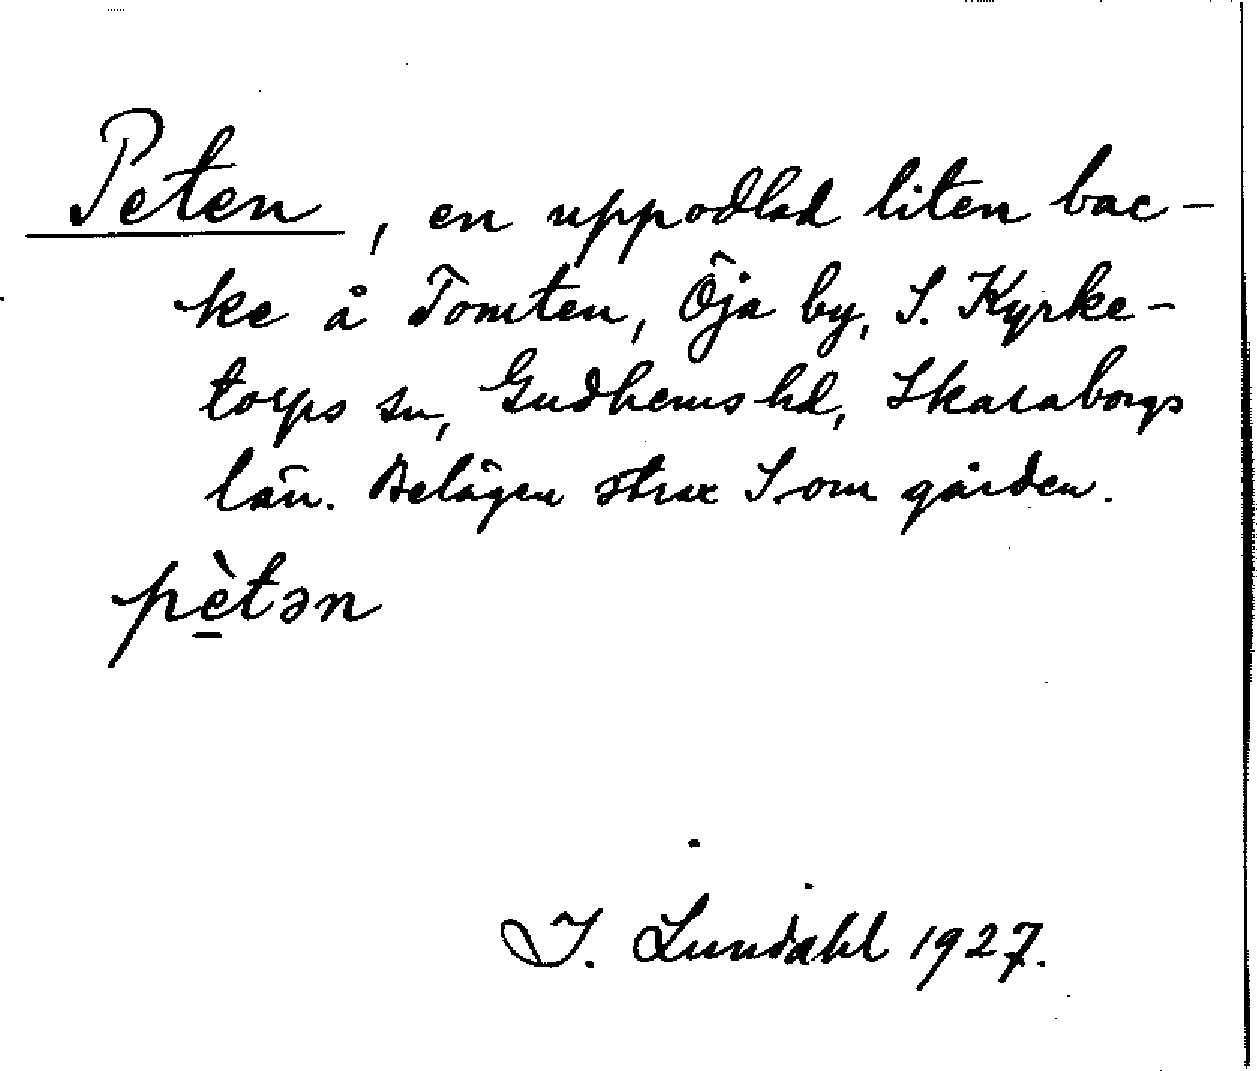 Peten, en uppodlad liten bac-
ke å Tomten, Öja by, S. Kyrke-
torps sn, Gudhems hd, Skaraborgs
län. Belägen strax S om gården.
pè̱tən
I. Lundahl 1927.